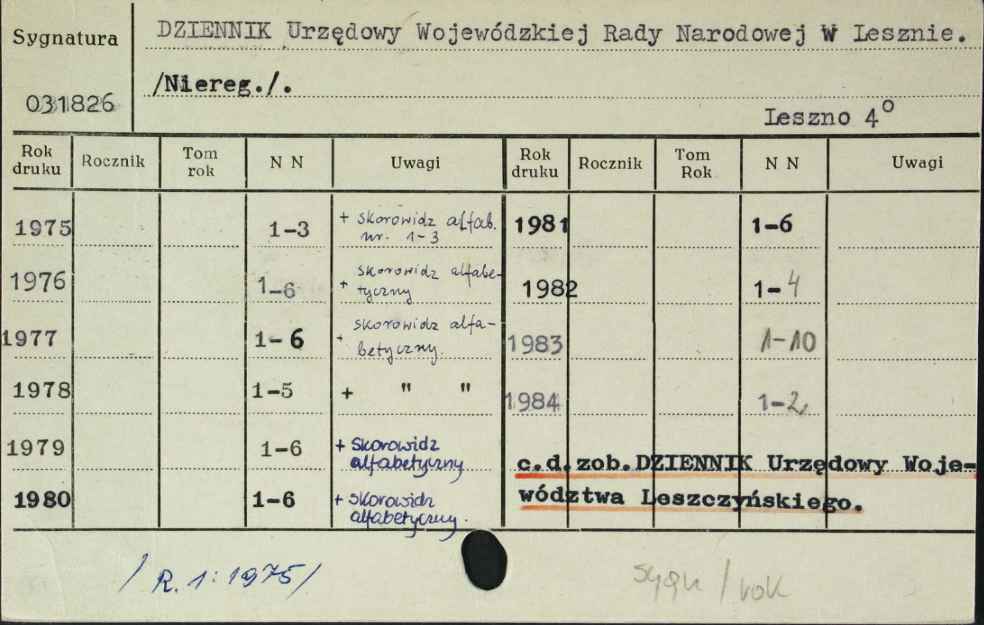 Sygnatura
DZIENNIK Urzędowy Wojewódzkiej Rady Narodowej W Lesznie.
/Niereg./.
031826
Leszno 4°
Rok druku Rocznik Tom rok N N Uwagi Rok druku Rocznik Tom Rok N N Uwagi
1975 1-3 + skorowidz alfab. nr. 1-3 1981 1-6
1976 1-6 + skorowidz alfabe-tyczny 1982 1-4
1977 1-6 + skorowidz alfa-betyczny. 1983 1-10
1978 1-5 + " " 1984 1-2
1979 1-6 + Skorowidz alfabetyczny
c.d. zob. DZIENNIK Urzędowy Woje-
1980 1-6 + skorowidz alfabetyczny.
wództwa Leszczyńskiego.
/ R. 1: 1975/
sygn / rok